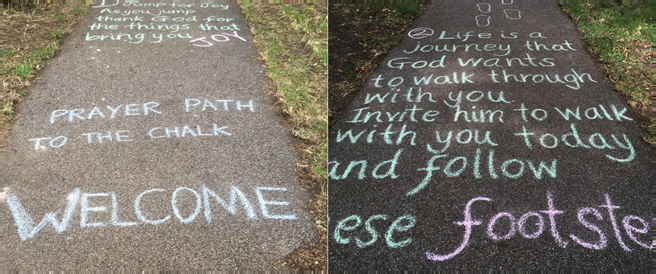 Jump for Joy
As you jump
thank God for
the things that
bring you JOY
PRAYER PATH
TO THE CHALK
WELCOME
② Life is a
journey that
God wants
to walk through
with you
Invite him to walk
with you today
and follow
ese footste